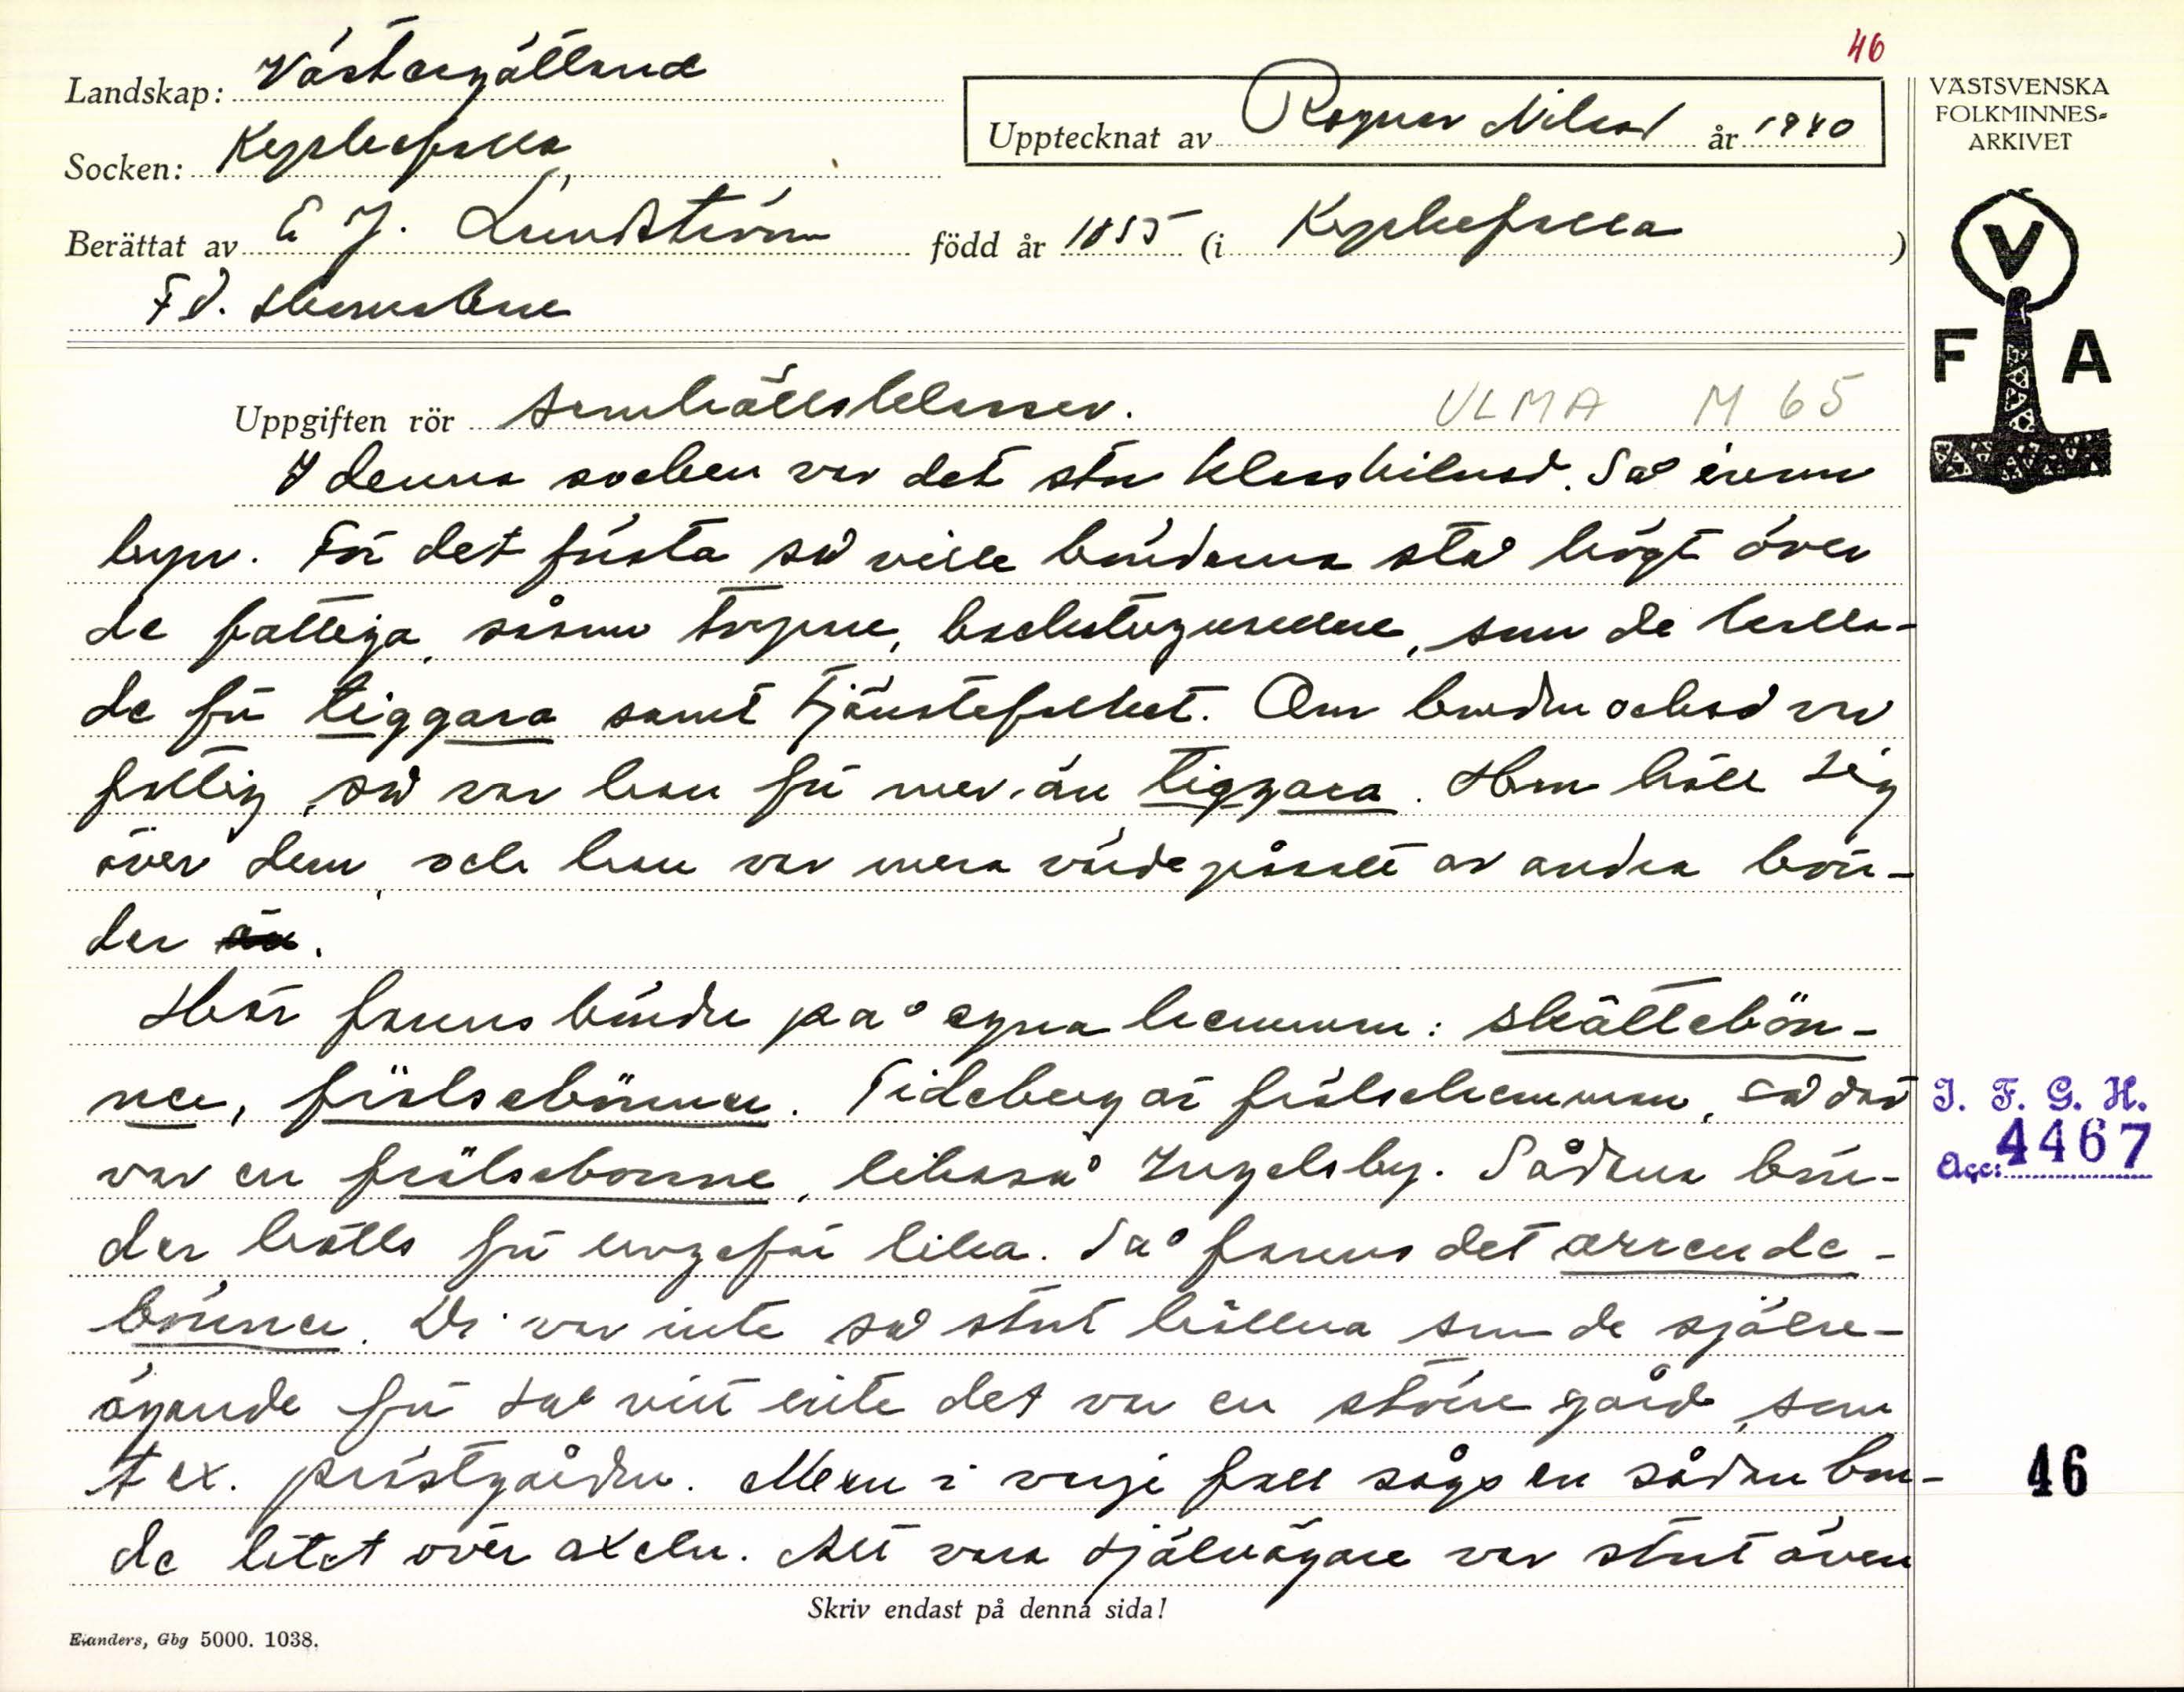 46
Landskap: Västergötland
Socken: Kyrkefalla
Upptecknat av Ragnar Nilsson år 1940
VÄSTSVENSKA
FOLKMINNES-
ARKIVET
Berättat av E J. Lundström född år 1855 (i Kyrkefalla)
F d.
V
F A
Uppgiften rör samhällsklasser.
ULMA M 65
I denna socken var det stor klasskillnad. Så även
byar. För det första så ville bönderna stå högt över
de fattiga, såsom torpare, backstugusittare, som de kalla-
de för tiggara samt tjänstefolket. Om bonden också var
fattig, så var han för mer än tiggara. Han höll sig
över dem, och han var mera värdepåsatt av andra bön-
der än.
Här fanns bönder på egna hemman: skättebön-
ner, frälsebönner. Tideberg är frälsehemman, så där
var en frälsebonne, likaså Ingelsby. Sådana bön-
der hölls för ungefär lika. Så fanns det arrende-
bönner. De var inte så stort hållna som de själv-
ägande för så vitt inte det var en större gård, som
t ex. prästgården. Men i varje fall sågs en sådan bon-
de litet över axeln. Att vara självägare var stort även
J. F. G. H.
Acc: 4467
46
Skriv endast på denna sida!
Elanders, Gbg 5000. 1038.